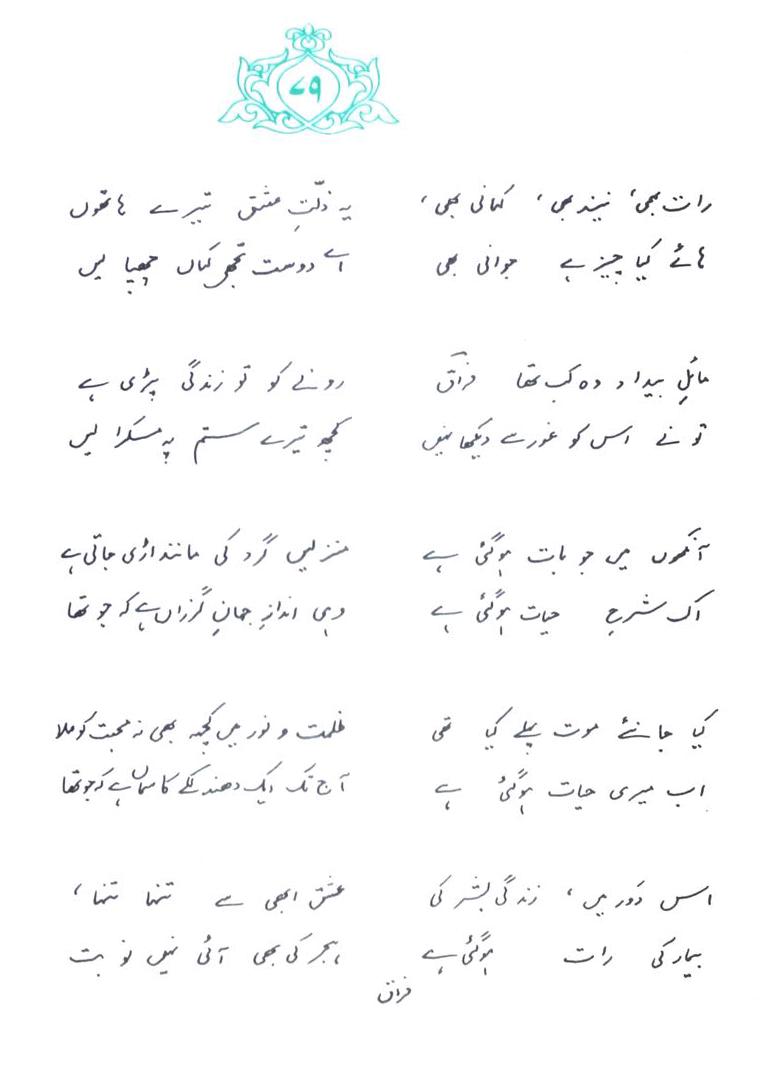 ۷۹
رات بھی، نیند بھی، کہانی بھی،
ہائے کیا چیز ہے جوانی بھی
یہ ذلّتِ عشق تیرے ہاتھوں
اے دوست تجھے کہاں چھپا لیں
مائلِ بیداد وہ کب تھا فراقؔ
تو نے اس کو غور سے دیکھا نہیں
رونے کو تو زندگی پڑی ہے
کچھ تیرے ستم پہ مسکرا لیں
آنکھوں میں جو بات ہوگئی ہے
اک شرحِ حیات ہوگئی ہے
منزلیں گرد کی مانند اڑی جاتی ہے
وہی اندازِ جہانِ گزراں ہے کہ جو تھا
کیا جانئے موت پہلے کیا تھی
اب میری حیات ہوگئی ہے
ظلمت و نور میں کچھ بھی نہ محبت کو ملا
آج تک ایک دھندلکے کا سماں ہے کہ جو تھا
اس دَور میں، زندگی بشر کی
بیمار کی رات ہوگئی ہے
عشق ابھی سے تنہا تنہا،
ہجر کی بھی آئی نہیں نوبت
فراق